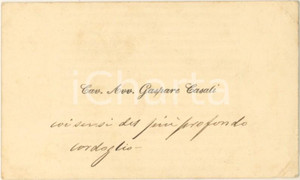 Cav. Avv. Gaspare Casali
coi sensi del più profondo
cordoglio -
iCharta